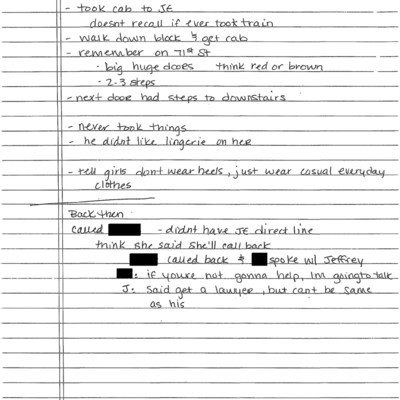 - took cab to JE
doesnt recall if ever took train
- walk down block & get cab
- remember on 71st St
· big huge doors think red or brown
· 2-3 steps
- next door had steps to downstairs
- never took things
- he didnt like lingerie on her
- tell girls dont wear heels, just wear casual everyday
clothes
Back then
called - didnt have JE direct line
think she said she'll call back
called back & spoke w/ Jeffrey
: if you're not gonna help, Im going to talk
J: Said get a lawyer, but cant be same
as his